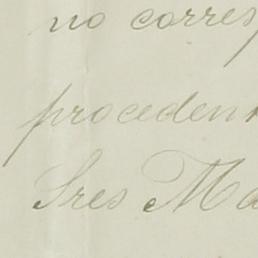 no corres
procedent
Sres Ma